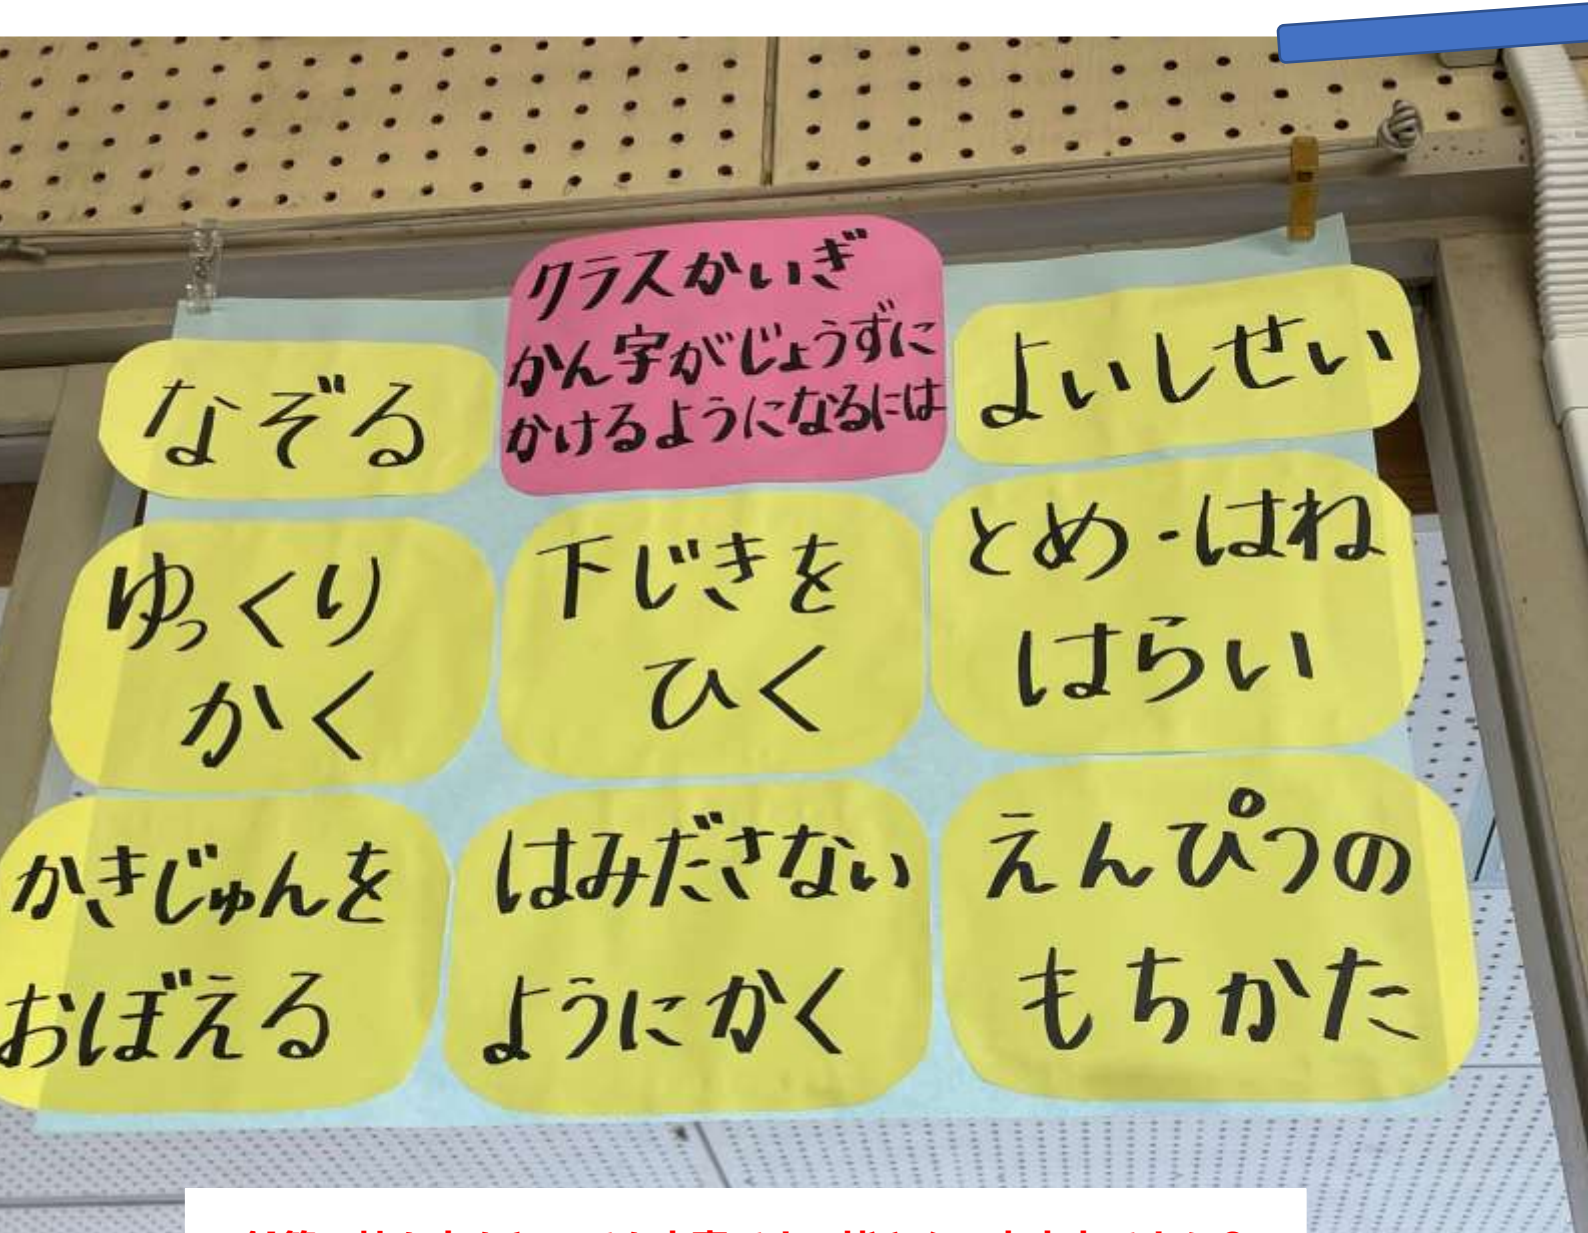 クラスかいぎ
かん字がじょうずに
かけるようになるには
なぞる
よいしせい
ゆっくり
かく
下じきを
ひく
とめ・はね
はらい
かきじゅんを
おぼえる
はみださない
ようにかく
えんぴつの
もちかた